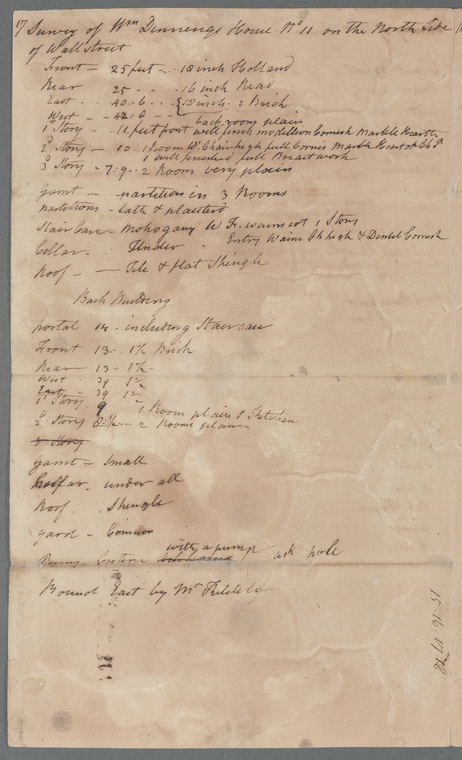 17 Survey of Wm Dennings House No 11 on the North Side
of Wall Street
Front - 25 feet - 18 inch Holland
Rear 25 - - 16 inch Head
East - 40.6 - 10 inch. 2 Brick
West - 42.0 -
back room plain
1o Story - 12 feet front well finish modillion Cornish Marble Hearth
2o Story - 10. 1 Room Wt Chair high full Cornis Marble Heart & Ch P
1 well finished full Breast work
3o Story - 7.9 .. 2 Room very plain
garret - partition in 3 Rooms
partitions - Lath & plasterd
Stair Case - Mohogany W Fr. wainscot 1 Story
Entry Wains Ch high & Dentel Cornish
Cellar. Under
Roof - - Tile & flat Shingle
Back Building
portal 14. including Staircase
Front 13. 1½ Brick
Rear 13 - 1½ -
West - 39 1½
East - 39 1½
1o Story 9 1 Room plain & Kitchen
2o Story 8½ - 2 Rooms plain
3 Story
garret - small
Cellar. under all
Roof. Shingle
yard - Common
Cestern with a pump ash hole
Bound East by Mr
15.16.17.18